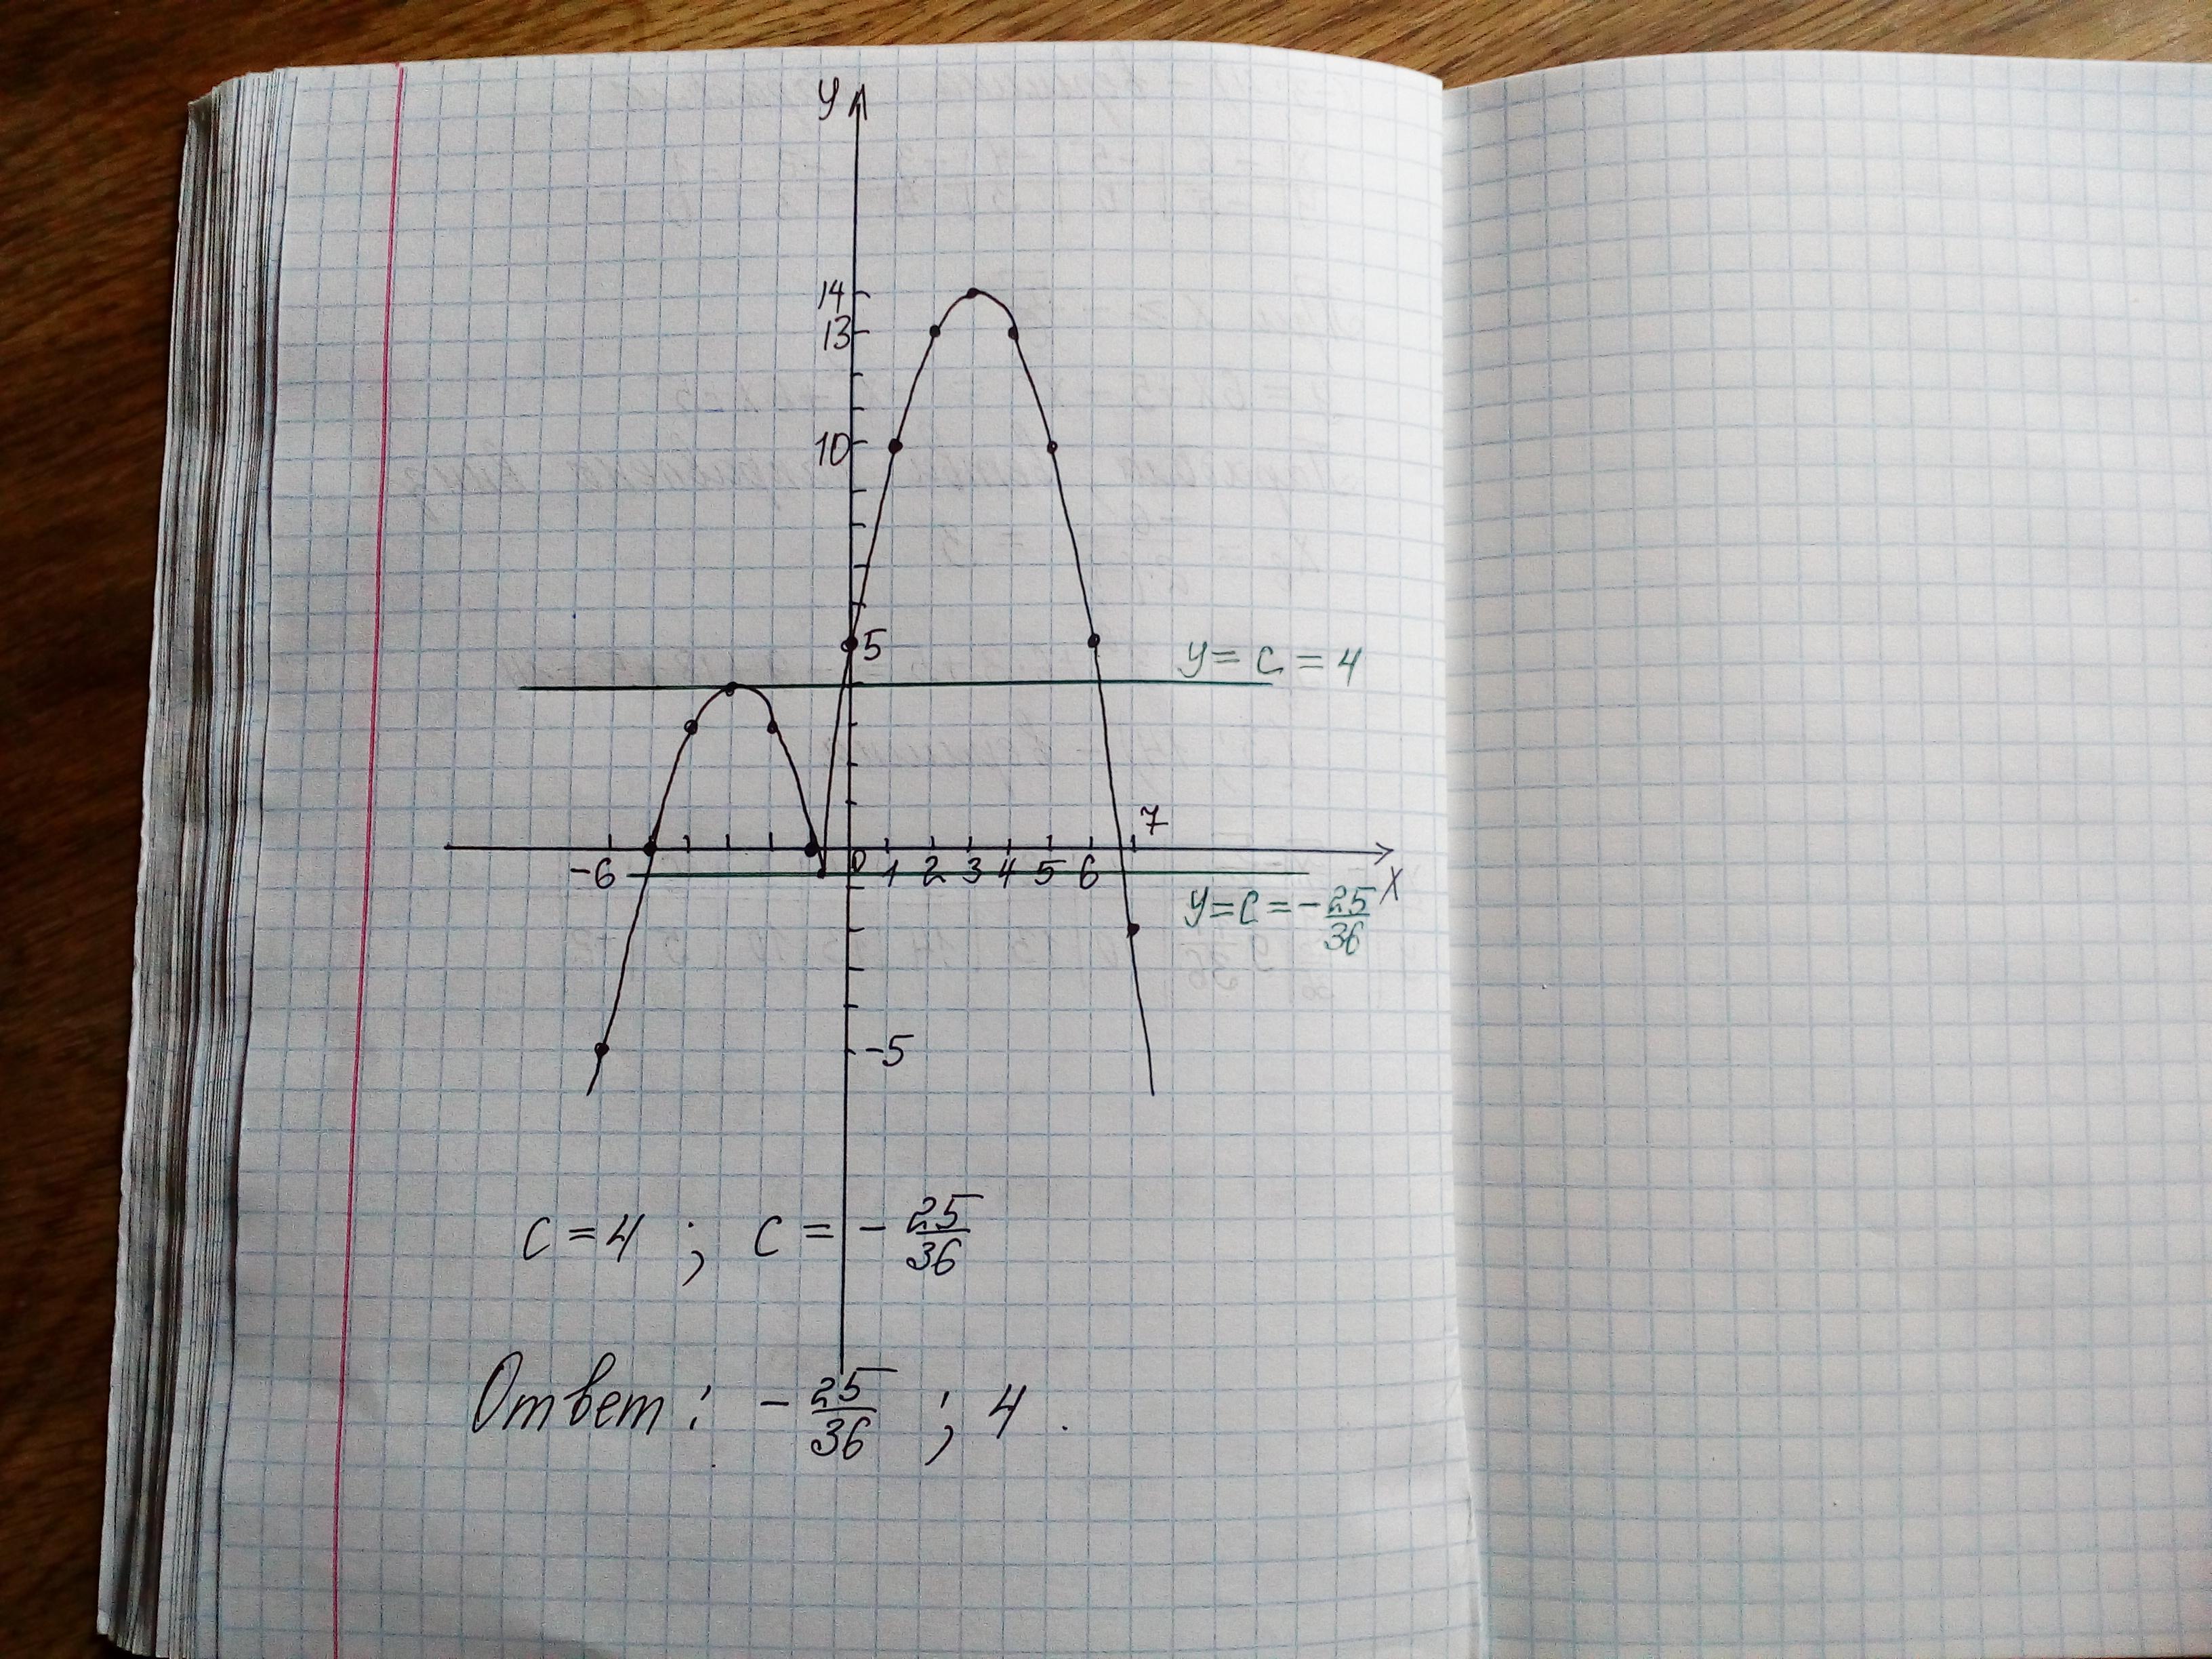 y
14
13
10
5
y = c = 4
7
-6 0 1 2 3 4 5 6
x
y = c = -25/36
-5
c = 4 ; c = -25/36
Ответ: -25/36 ; 4.